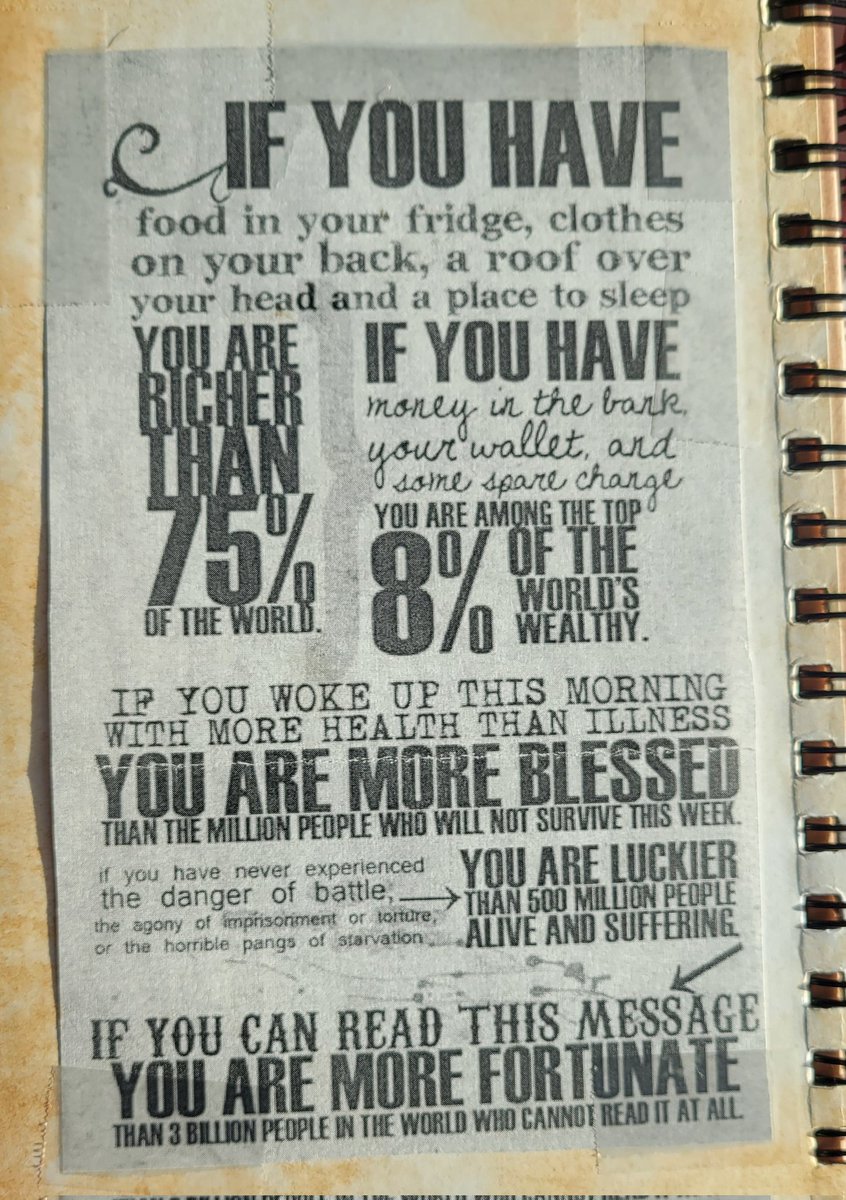 IF YOU HAVE
food in your fridge, clothes
on your back, a roof over
your head and a place to sleep
YOU ARE
RICHER
THAN
75%
OF THE WORLD.
IF YOU HAVE
money in the bank,
your wallet, and
some spare change
YOU ARE AMONG THE TOP
8% OF THE
WORLD'S
WEALTHY.
IF YOU WOKE UP THIS MORNING
WITH MORE HEALTH THAN ILLNESS
YOU ARE MORE BLESSED
THAN THE MILLION PEOPLE WHO WILL NOT SURVIVE THIS WEEK.
if you have never experienced
the danger of battle,
the agony of imprisonment or torture,
or the horrible pangs of starvation
YOU ARE LUCKIER
THAN 500 MILLION PEOPLE
ALIVE AND SUFFERING.
IF YOU CAN READ THIS MESSAGE
YOU ARE MORE FORTUNATE
THAN 3 BILLION PEOPLE IN THE WORLD WHO CANNOT READ IT AT ALL.